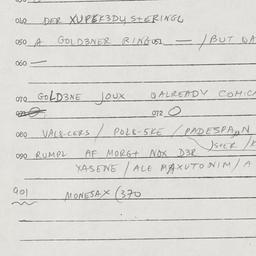 040 DER XUPEK3DY STERINGL
050 A GOLD3NER RING 051 — / BUT
060 —
070 GOLD3NE JOUX ALREADY COMIC
072 O
080 VALS-CERS / POLE-SKE / PADESPAN
STER /
090 RUMPL AF MORGT NOX D3R
YASENE / ALE MAXUTONIM / A
901 MONESAX (370